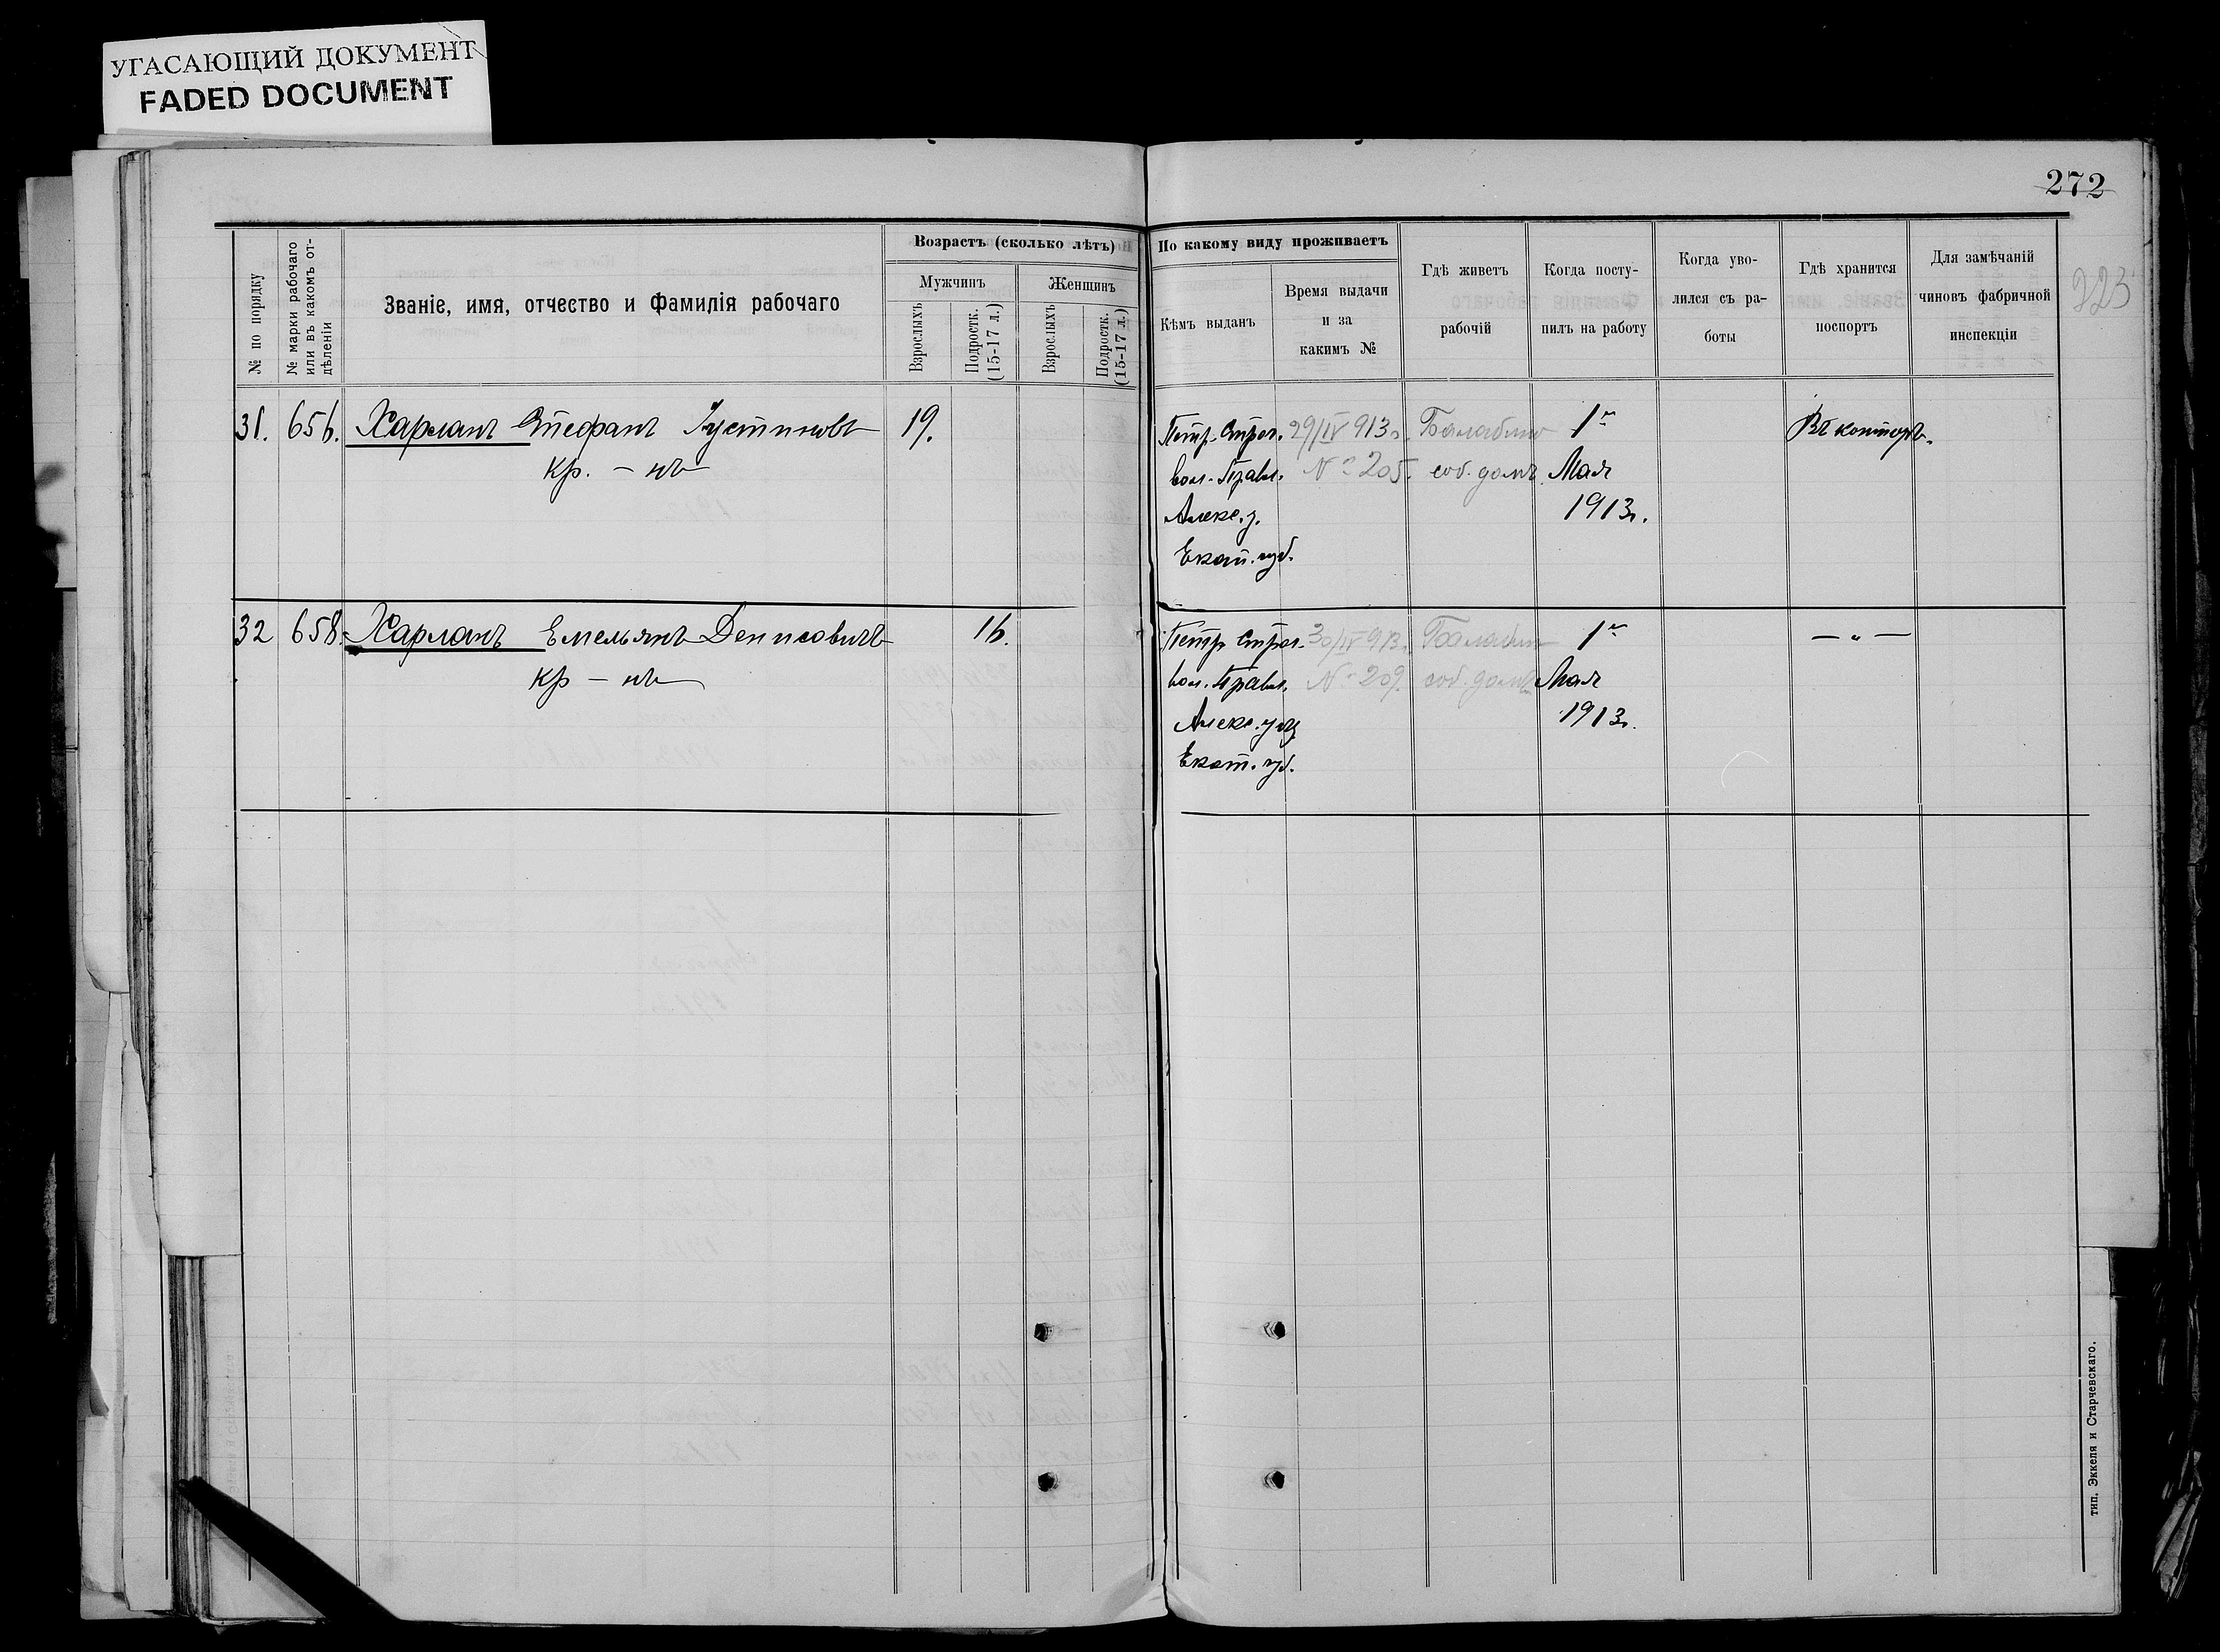 УГАСАЮЩИЙ ДОКУМЕНТ
FADED DOCUMENT
272
223
№ по порядку
№ марки рабочаго
или въ какомъ от-
дѣленіи
Званіе, имя, отчество и фамилія рабочаго
Возрастъ (сколько лѣтъ)
Мужчинъ
Женщинъ
Взрослыхъ
Подростк.
(15-17 л.)
Взрослыхъ
Подростк.
(15-17 л.)
По какому виду проживаетъ
Кѣмъ выданъ
Время выдачи
и за
какимъ №
Гдѣ живетъ
рабочій
Когда посту-
пилъ на работу
Когда уво-
лился съ ра-
боты
Гдѣ хранится
поспортъ
Для замѣчаній
чиновъ фабричной
инспекціи
31. 656. Харланъ Стефанъ Іустиновъ 19.
кр. - нъ
Петр. Строг.
вол. Правл.
Алекс. у.
Екат. губ.
29/IV 913 г.
№ 205.
Балабино
соб. домъ
1го
Мая
1913 г.
Въ конторѣ.
32 658. Харланъ Емельянъ Денисовичъ 16.
кр - нъ
Петр Строг.
вол. Правл.
Алекс. уѣз
Екат. губ.
30/IV 913 г.
№ 209.
Балабино
соб. домъ
1го
Мая
1913 г.
— „ —
тип. Эккеля и Старчевскаго.